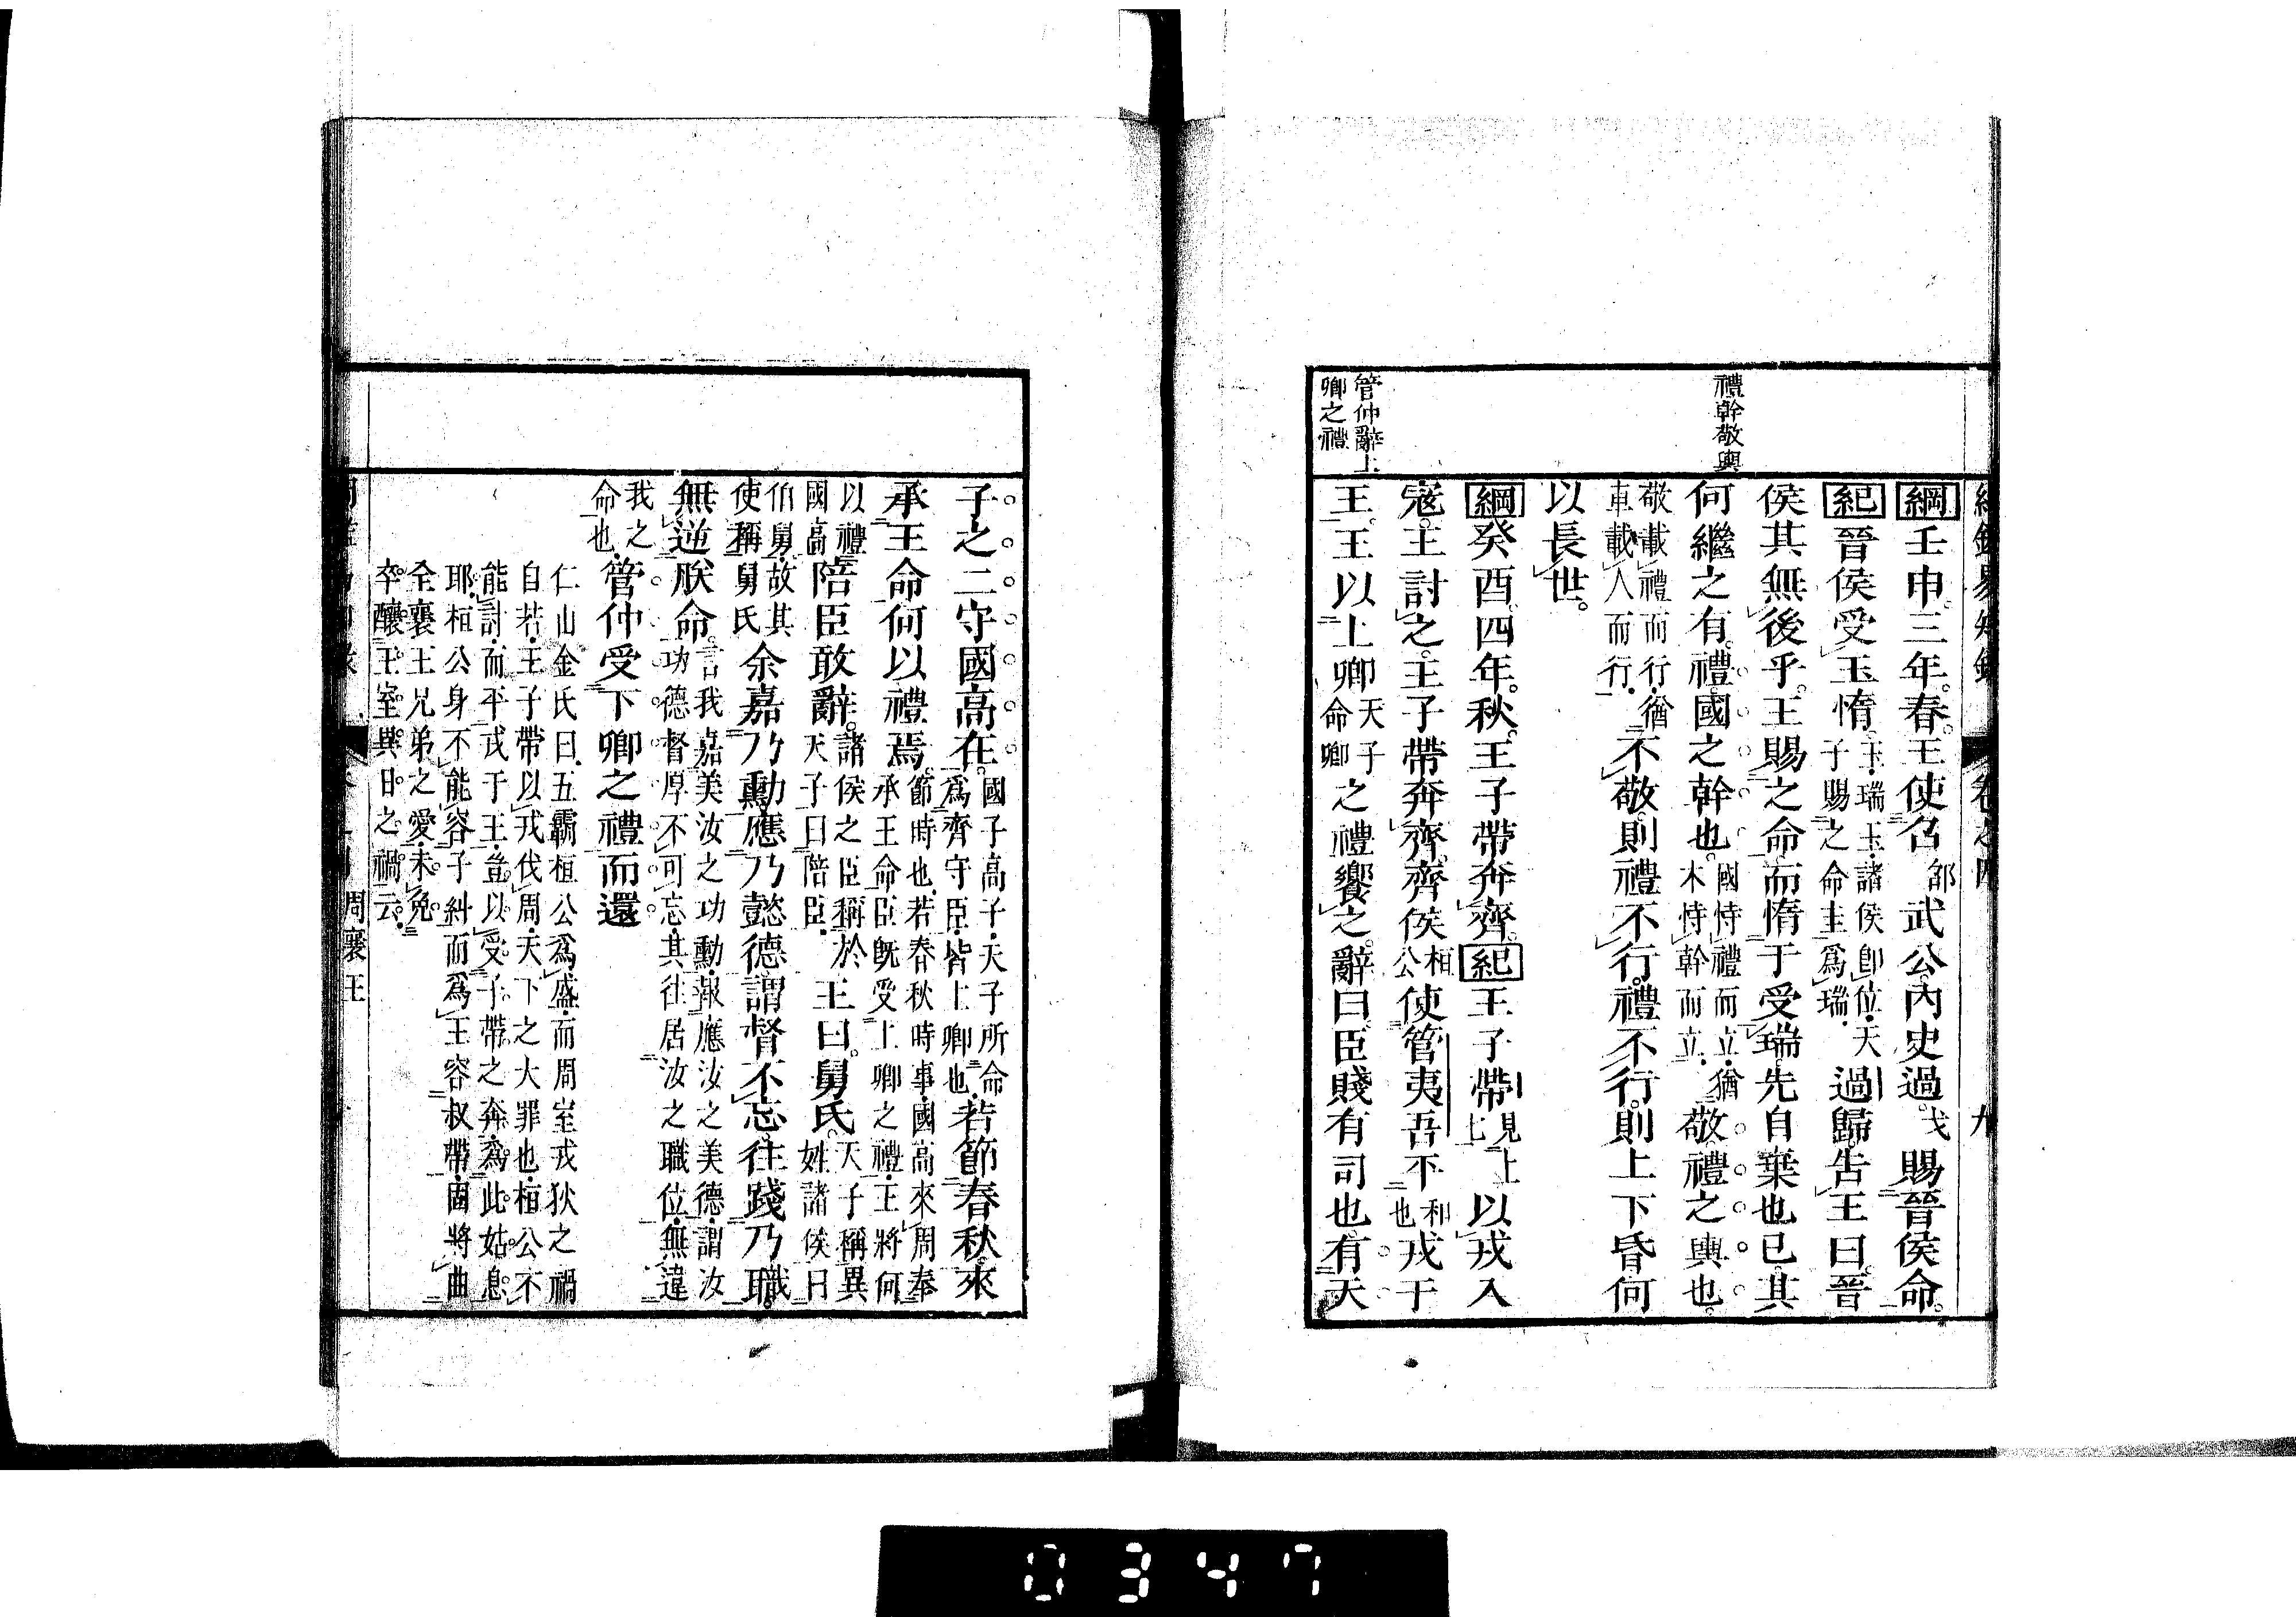 禮幹敬輿
管仲辭上
卿之禮
綱壬申三年春王使召邵武公內史過戈賜晉侯命
紀晉侯受玉惰玉瑞玉諸侯即位天
子賜之命圭爲瑞過歸告王曰晉
侯其無後乎王賜之命而惰于受瑞先自棄也已其
何繼之有禮國之幹也國恃禮而立猶
木恃幹而立敬禮之輿也
敬載禮而行猶
車載人而行不敬則禮不行禮不行則上下昏何
以長世
綱癸酉四年秋王子帶奔齊紀王子帶見上以戎入
寇王討之王子帶奔齊齊侯桓
公使管夷吾不和
也戎于
王王以上卿天子
命卿之禮饗之辭曰臣賤有司也有天
子之二守國高在國子高子天子所命
爲齊守臣皆上卿也若節春秋來
承王命何以禮焉節時也若春秋時事國高來周奉
承王命臣既受上卿之禮王將何
以禮
國高陪臣敢辭諸侯之臣稱於
天子曰陪臣王曰舅氏天子稱異
姓諸侯曰
伯舅故其
使稱舅氏余嘉乃勳應乃懿德謂督不忘往踐乃職
無逆朕命言我嘉美汝之功勳報應汝之美德謂汝
功德督厚不可忘其往居汝之職位無違
我之
命也管仲受下卿之禮而還
仁山金氏曰五霸桓公爲盛而周室戎狄之禍
自若王子帶以戎伐周天下之大罪也桓公不
能討而平戎于王豈以受子帶之奔爲此姑息
耶桓公身不能容子糾而爲王容叔帶固將曲
全襄王兄弟之愛未免
卒釀王室異日之禍云
周襄王